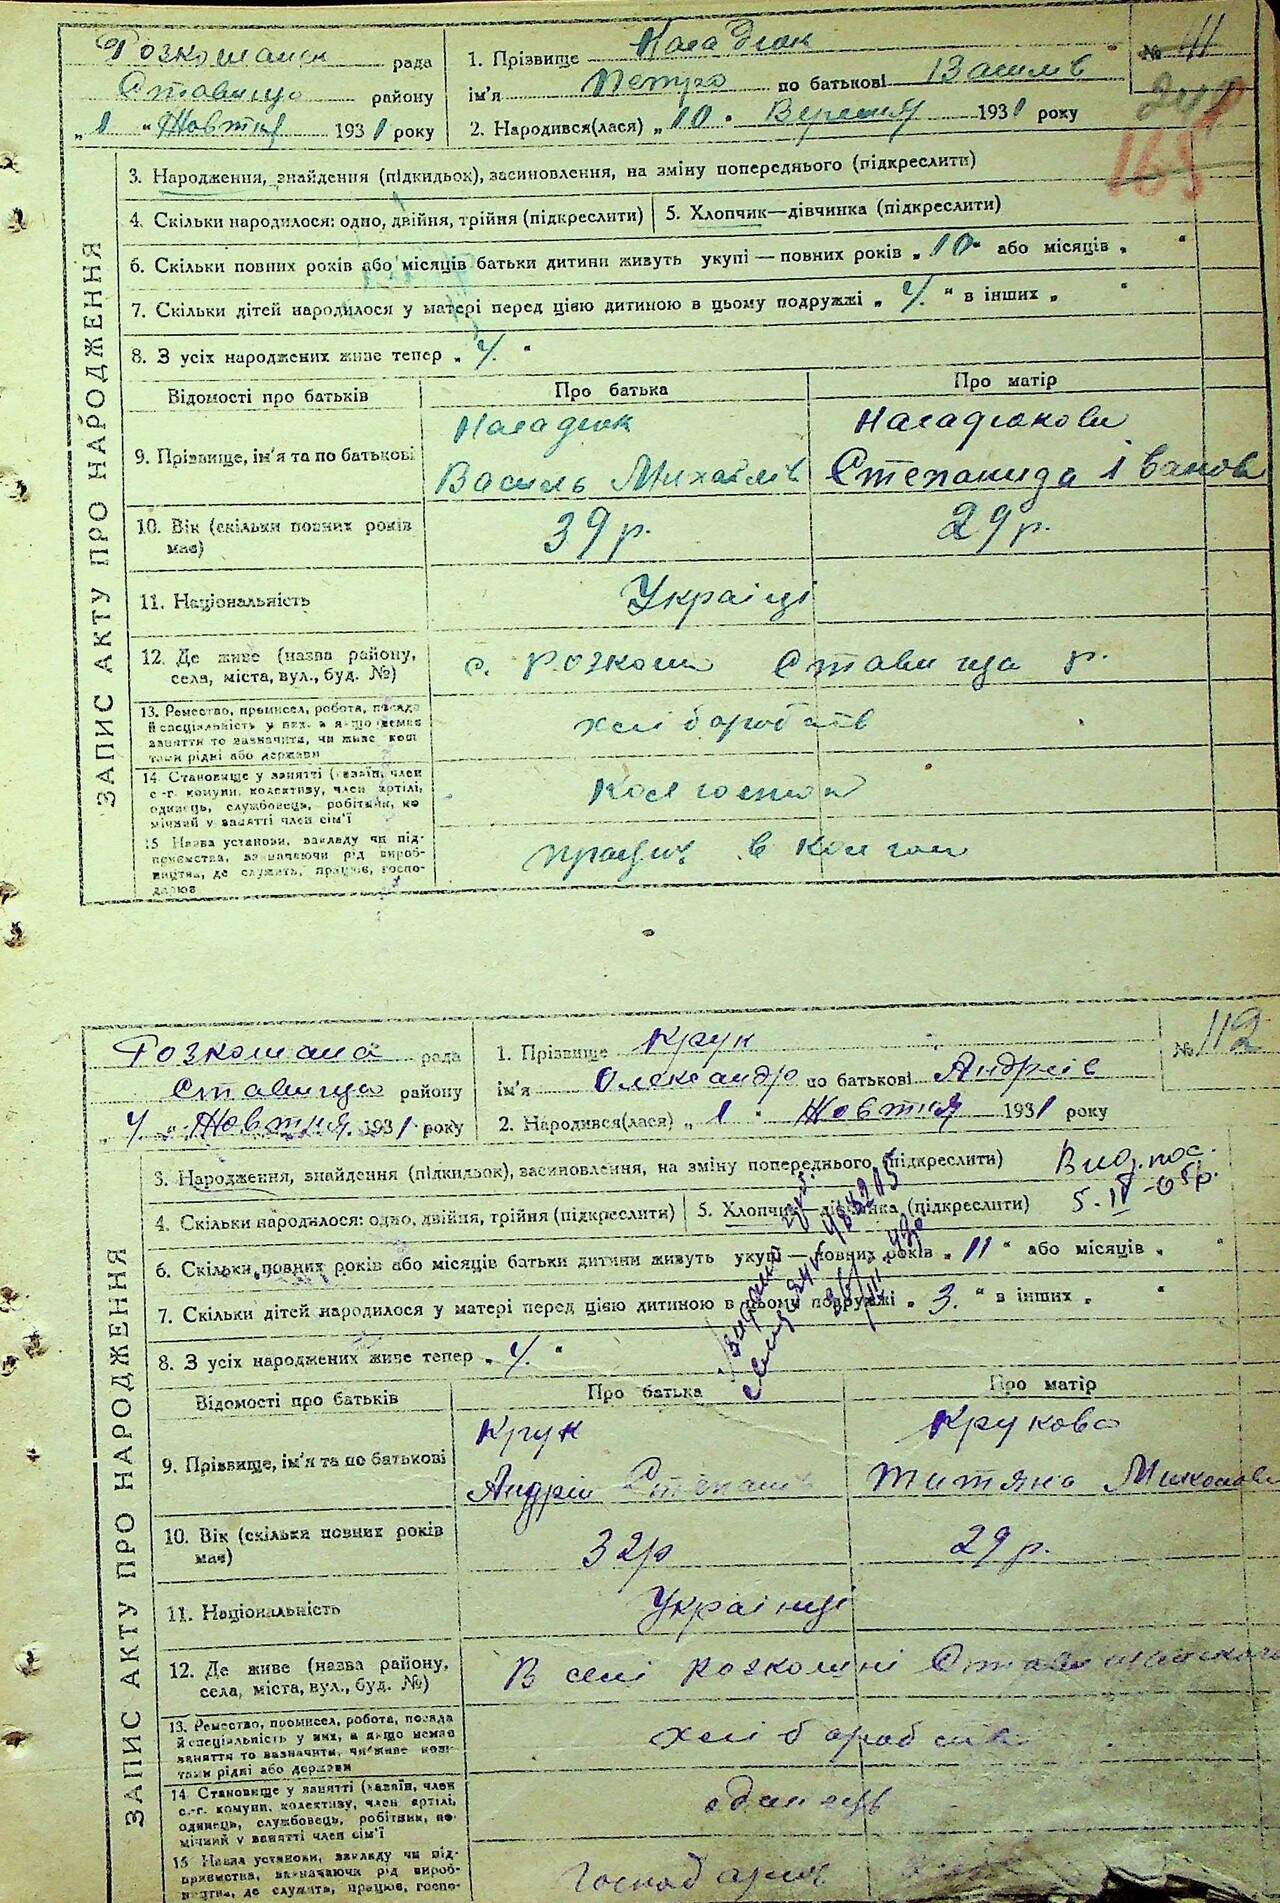 Розкошанск рада
Ставище району
„ 1 “ Жовтня 1931 року
1. Прізвище
ім'я Петро по батькові Василів
2. Народився(лася) „ 10 “ Вересня 1931 року
№ 41
165
ЗАПИС АКТУ ПРО НАРОДЖЕННЯ
3. Народження, знайдення (підкидьок), засиновлення, на зміну попереднього (підкреслити)
4. Скільки народилося: одно, двійня, трійня (підкреслити)
5. Хлопчик—дівчинка (підкреслити)
6. Скільки повних років або місяців батьки дитини живуть укупі — повних років „ 10 “ або місяців „ “
7. Скільки дітей народилося у матері перед цією дитиною в цьому подружжі „ 4. “ в інших „ “
8. З усіх народжених живе тепер „ 4. “
Відомості про батьків
Про батька
Про матір
9. Прізвище, ім'я та по батькові
Василь Михайлів
Степанида Іванов
10. Вік (скільки повних років має)
39 р.
29 р.
11. Національність
Українці
12. Де живе (назва району, села, міста, вул., буд. №)
с. Розкош Ставища р.
13. Ремество, промисел, робота, посада й спеціальність у них, а якщо немає заняття то зазначити, чи живе коштами рідні або держави
хліборобств
14. Становище у занятті (хазяїн, член с.-г. комуни, колективу, член артілі, одинець, службовець, робітник, помічний у занятті член сім'ї
15 Назва установи, закладу чи підприємства, зазначаючи рід виробництва, де служить, працює, господарює
працюють в колгоспі
Розкошана рада
Ставище району
„ 4 “ Жовтня 1931 року
1. Прізвище Крук
ім'я Олександр по батькові Андріїв
2. Народився(лася) „ 1 “ Жовтня 1931 року
№ 112
ЗАПИС АКТУ ПРО НАРОДЖЕННЯ
3. Народження, знайдення (підкидьок), засиновлення, на зміну попереднього (підкреслити)
4. Скільки народилося: одно, двійня, трійня (підкреслити)
5. Хлопчик—дівчинка (підкреслити)
6. Скільки повних років або місяців батьки дитини живуть укупі — повних років „ 11 “ або місяців „ “
7. Скільки дітей народилося у матері перед цією дитиною в цьому подружжі „ 3. “ в інших „ “
8. З усіх народжених живе тепер „ 4. “
Відомості про батьків
Про батька
Про матір
9. Прізвище, ім'я та по батькові
Крук
Крукова
Андрій Степанів
Титяна
10. Вік (скільки повних років має)
32р
29 р.
11. Національність
Українці
12. Де живе (назва району, села, міста, вул., буд. №)
В селі
13. Ремество, промисел, робота, посада й спеціальність у них, а якщо немає заняття то зазначити, чи живе коштами рідні або держави
хліборобств
14 Становище у занятті (хазяїн, член с.-г. комуни, колективу, член артілі, одинець, службовець, робітник, помічний у занятті член сім'ї
одинець
15 Назва установи, закладу чи підприємства, зазначаючи рід виробництва, де служить, працює, госпо-